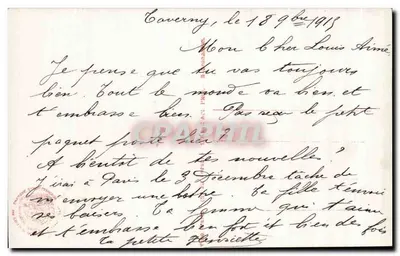 Taverny, le 18 9bre 1915
Mon Cher Louis Aimé
Je pense que tu vas toujours
bien. Tout le monde va bien et
t'embrasse bien. Pas reçu le petit
paquet poste hier?
A bientôt de tes nouvelles?
J'irai à Paris le 3 Décembre tâche de
m'envoyer une lettre. Ta fille t'envoie
ses baisers. Ta femme qui t'aime
et t'embrasse bien fort et bien des fois
ta petite Henriette
CPARAMA